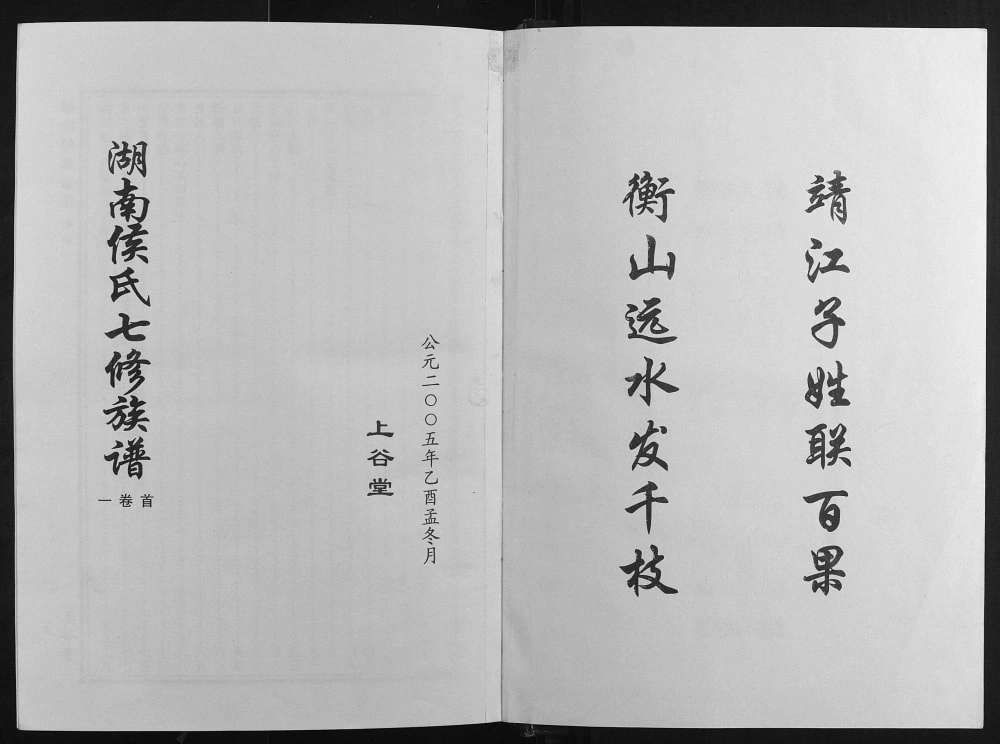 靖江子姓联百果
衡山远水发千枝
公元二〇〇五年乙酉孟冬月
上谷堂
湖南侯氏七修族谱
首卷一